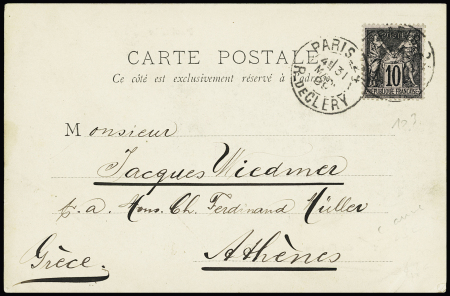 CARTE POSTALE
Ce côté est exclusivement réservé à
PARIS
31
R. DE CLERY
POSTES
10
REPUBLIQUE FRANCAISE
Monsieur
Jacques Wiedmer
p. a. Mons. Ch. Ferdinand Müller
Athènes
Grèce.